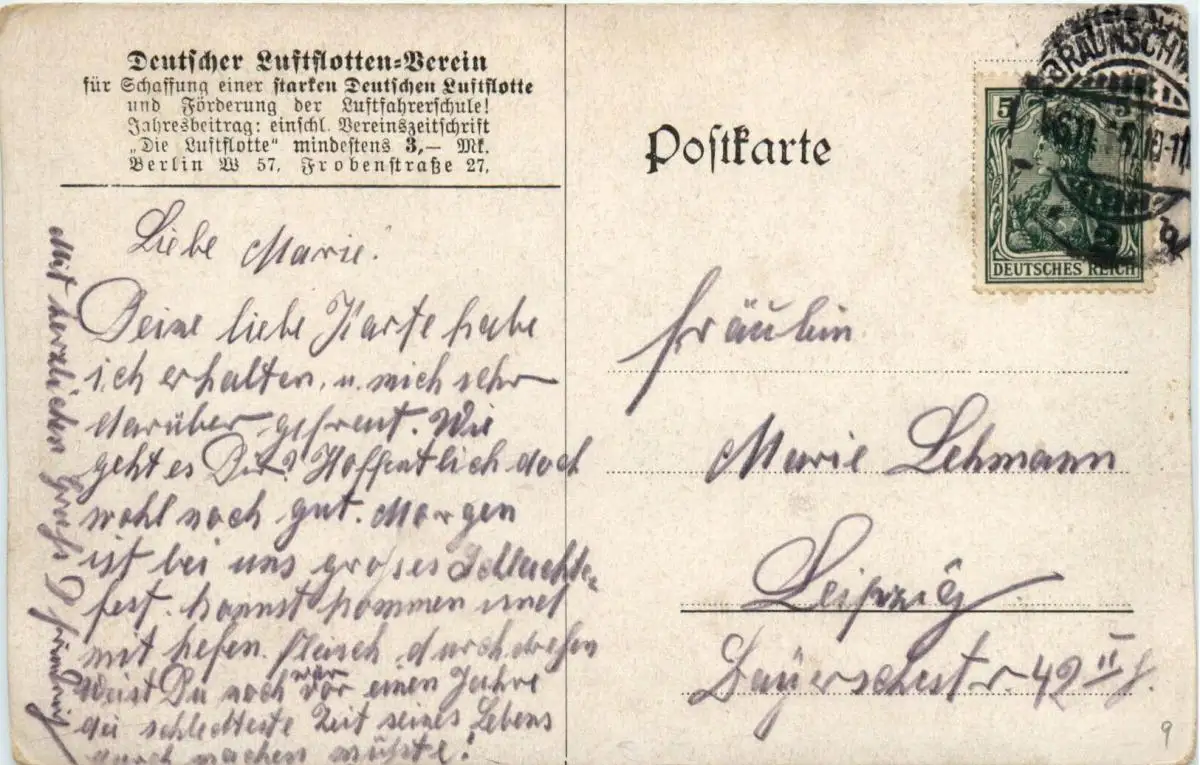 Deutscher Luftflotten-Verein
für Schaffung einer starken Deutschen Luftflotte
und Förderung der Luftfahrerschule!
Jahresbeitrag: einschl. Vereinszeitschrift
„Die Luftflotte" mindestens 3,— Mk.
Berlin W 57, Frobenstraße 27.
Liebe Marie!
Deine liebe Karte habe
ich erhalten, u. mich sehr
darüber gefreut. Wie
geht es Dir? Hoffentlich doch
wohl noch gut. Morgen
ist bei uns großes Schlachte-
fest. kannst kommen und
mit helfen. Fleisch durchdrehen
Weist Du noch vor einen Jahre
war
die schlechteste Zeit seines Lebens
durch machen müßte!
Mit herzlichen Gruß D
Postkarte
BRAUNSCHW
5
DEUTSCHES REICH
Fräulein
Marie Lehmann
Leipzig
Bayerschestr. 49 II
9